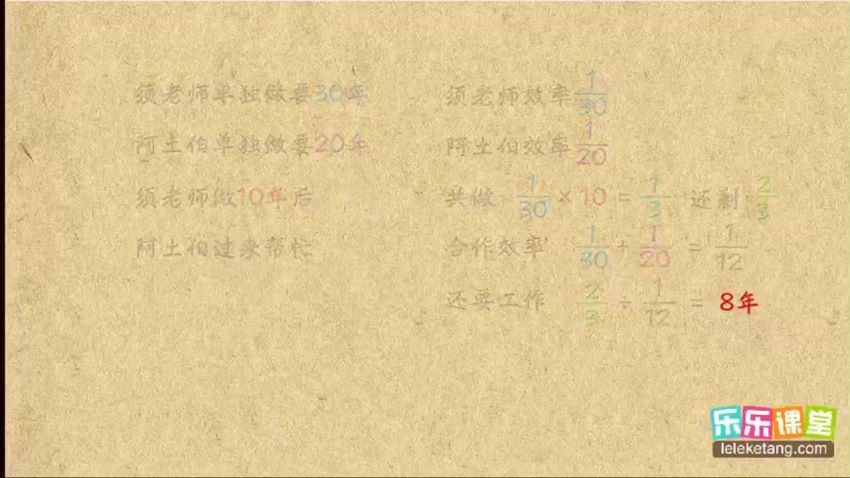 须老师单独做要30年
阿土伯单独做要20年
须老师做10年后
阿土伯过来帮忙
须老师效率 1/30
阿土伯效率 1/20
共做 1/30 × 10 = 1/3 还剩 2/3
合作效率 1/30 + 1/20 = 1/12
还要工作 2/3 ÷ 1/12 = 8年
乐乐课堂
leleketang.com